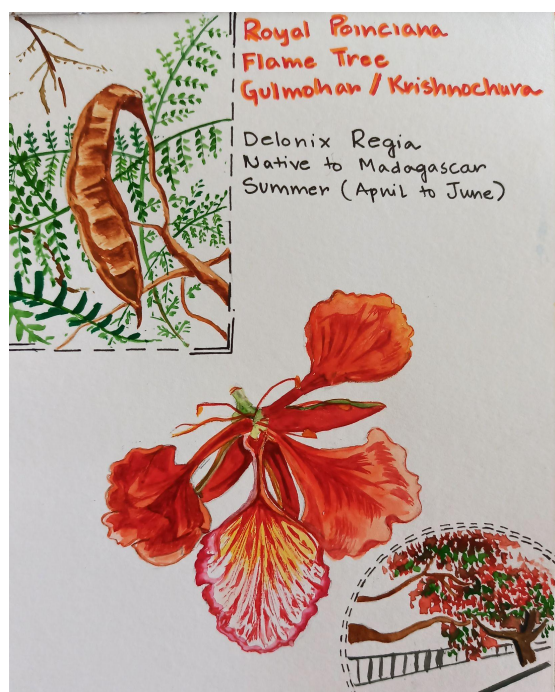 Royal Poinciana
Flame Tree
Gulmohar / Krishnochura
Delonix Regia
Native to Madagascar
Summer (April to June)